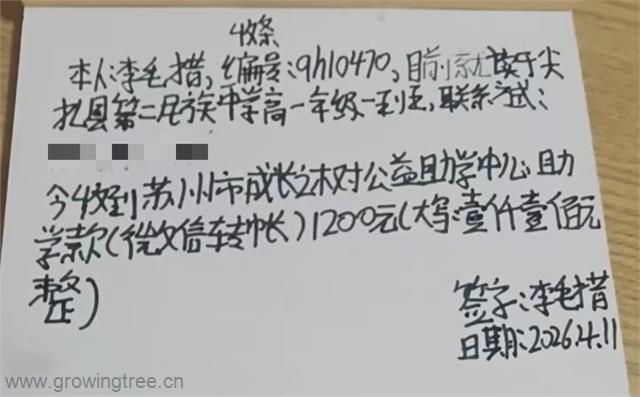 收条
本人:李毛措,编号:gh10470,目前就读于尖
扎县第二民族中学高一年级一班,联系方式:
今收到苏州市成长之树对公益助学中心助
学款(微信转帐)1200元(大写:壹仟壹佰元
整)
签字:李毛措
日期:2026.4.11
www.growingtree.cn